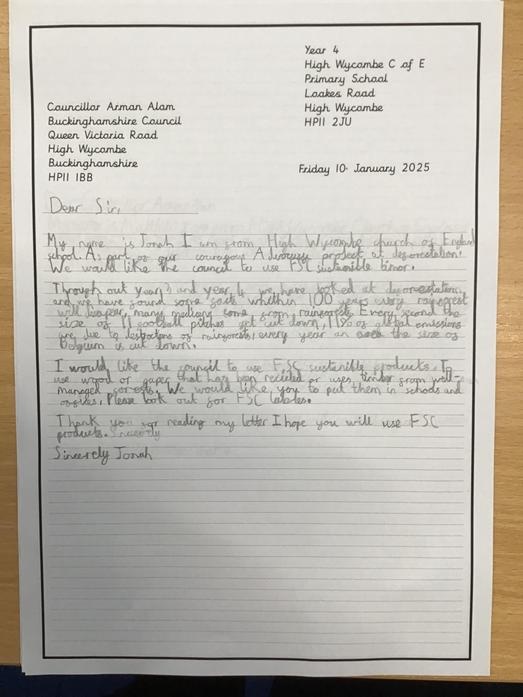 Year 4
High Wycombe C of E
Primary School
Loakes Road
High Wycombe
HP11 2JU
Councillor Arman Alam
Buckinghamshire Council
Queen Victoria Road
High Wycombe
Buckinghamshire
HP11 1BB
Friday 10 January 2025
Dear Sir,
My name is Jonah I am from High Wycombe church of England
school. As part of our couragous Advocacy project at deforestation!
We would like the council to use FSC sustainible timor.
Through out year 3 and year 4 we have looked at deforestation,
and we have found some facts whithin 100 years every rainforest
will disapear, many medians come from rainforests. Every second the
size of 11 football pitches get cut down, 11% of global emissions
are due to of rainforests, every year an area the size of
Belgium is cut down.
I would like the council to use FSC sustainible products. To
use wood or paper that has ben or uses timber from well-
managed forests. We would like you to put them in schools and
offices, Please look out for FSC lables.
Thank you for reading my letter I hope you will use FSC
products. Sincerely
Sincerely Jonah